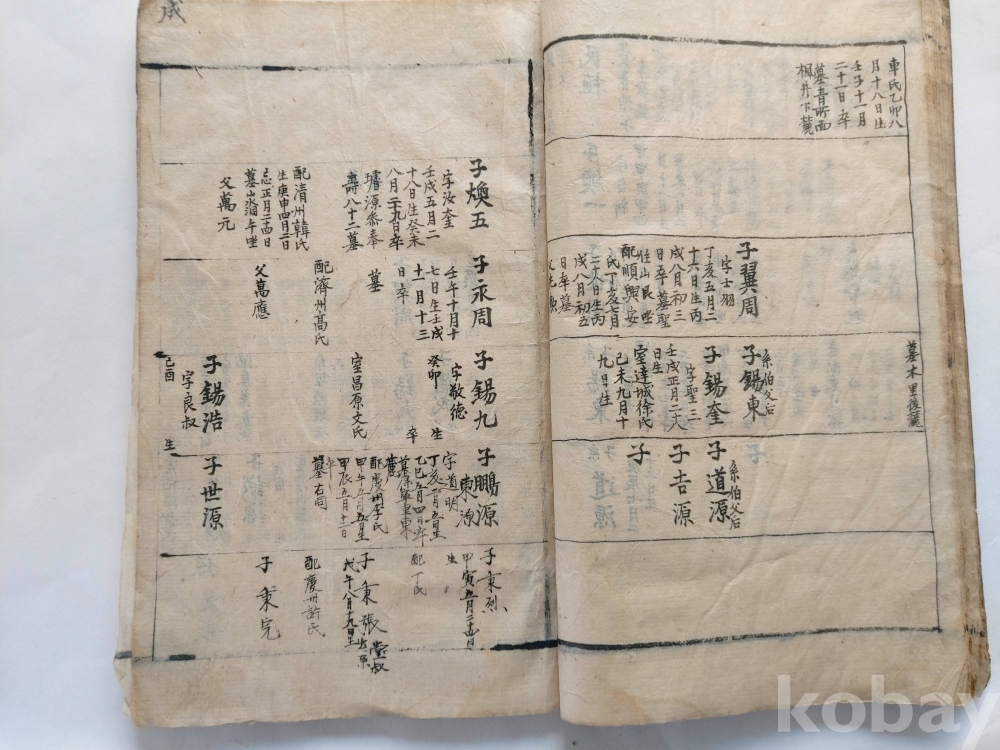 車氏乙卯八
月十八日生
壬子十一月
二十一日卒
墓青所面
楓井下麓
子翼周
字士羽
丁亥五月二
十六日生丙
戌八月初三
日卒墓聖
住山艮坐
配順興安
氏丁亥七月
二十八日生丙
戌八月初五
日卒墓
墓木里後麓
系伯父后
子錫東
子錫奎
字聖三
壬戌正月二十六
日生
室達城徐氏
己未九月十
九日生
系伯父后
子道源
子吉源
子
成
子煥五
字汝奎
壬戌五月二
十八日生癸未
八月二十九日卒
璿源參奉
壽八十二墓
配清州韓氏
生庚申四月二日
忌正月二十四日
父萬元
子永周
壬午十月十
七日生壬戌
十一月十三
日卒
墓
配濟州高氏
父萬應
子錫九
字敬德
癸卯 生
卒
室昌原文氏
子錫浩
字良叔
己酉 生
子鵬源
東源
字道明
配慶州李氏
甲辰五月十二日
墓右同
子世源
子秉烈
甲寅五月二十四日
生
配丁氏
子秉張
戊午八月十九日生
配慶州許氏
子秉完
kobay